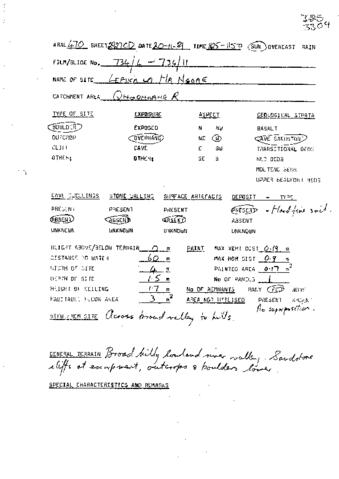 ARAL 670 SHEET 2927CD DATE 20-11-81 TIME 1125-1157 SUN OVERCAST RAIN
FILM/SLIDE No. 734/6 - 734/11
NAME OF SITE
CATCHMENT AREA R
TYPE OF SITE EXPOSURE ASPECT GEOLOGICAL STRATA
BOULDER EXPOSED N NW BASALT
OUTCROP OVERHANG NE W CAVE SANDSTONE
CLIFF CAVE E SW TRANSITIONAL BEDS
OTHER: OTHER: SE S RED BEDS
MOLTENO BEDS
UPPER BEAUFORT BEDS
CAVE DWELLINGS STONE WALLING SURFACE ARTEFACTS DEPOSIT - TYPE
PRESENT PRESENT PRESENT PRESENT - Hard fine soil.
ABSENT ABSENT ABSENT ABSENT
UNKNOWN UNKNOWN UNKNOWN UNKNOWN
HEIGHT ABOVE/BELOW TERRAIN 0 m PAINT MAX VERT DIST 0.19 m
DISTANCE TO WATER 60 m MAX HOR DIST 0.9 m
WIDTH OF SITE 4 m PAINTED AREA 0.17 m²
DEPTH OF SITE 1.5 m No OF PANELS 1
HEIGHT OF CEILING 1.7 m No OF REMNANTS MANY FEW NONE
HABITABLE FLOOR AREA 3 m² AREA NOT UTILISED PRESENT
No superposition.
VIEW FROM SITE Across broad valley to hills.
GENERAL TERRAIN Broad hilly lowland river valley. Sandstone
cliffs at escarpment, outcrops & boulders lower.
SPECIAL CHARACTERISTICS AND REMARKS